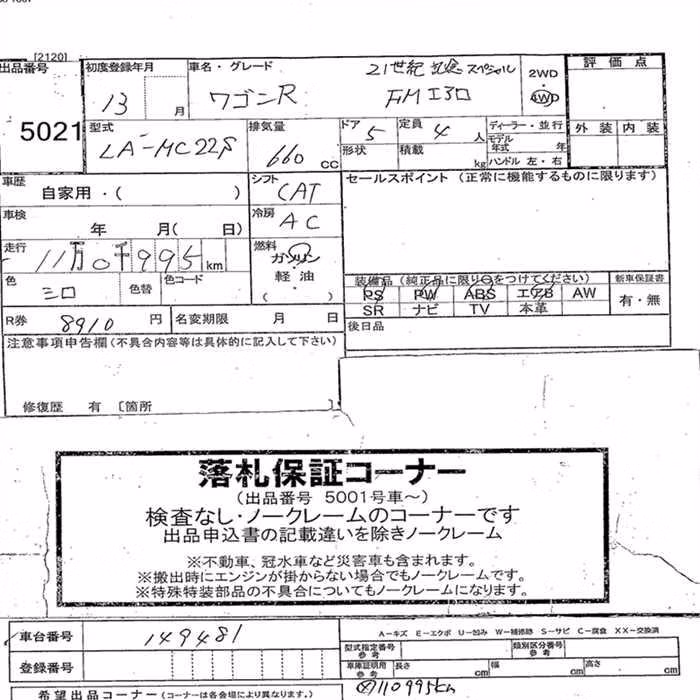 [2120]
出品番号
5021
初度登録年月
13 月
車名・グレード
ワゴンR
21世紀 記念 スペシャル
FMエアロ
2WD
4WD
評価点
外装 内装
型式
LA-MC22S
排気量
660 cc
ドア 5
形状
定員 4 人
積載 kg
ディーラー・並行
モデル年式 年
ハンドル 左・右
車歴
自家用・( )
シフト
CAT
セールスポイント (正常に機能するものに限ります)
車検
年 月( 日)
冷房
AC
走行
11万0千995km
燃料
ガソリン
軽・油
( ・ )
色
シロ
色替
色コード
装備品 (純正品に限り○をつけてください)
PS PW ABS エアB AW
SR ナビ TV 本革
新車保証書
有・無
R券 8910 円
名変期限 月 日
後日品
注意事項申告欄(不具合内容等は具体的に記入して下さい)
修復歴 有 [箇所 ]
落札保証コーナー
(出品番号 5001号車~)
検査なし・ノークレームのコーナーです
出品申込書の記載違いを除きノークレーム
※不動車、冠水車など災害車も含まれます。
※搬出時にエンジンが掛からない場合でもノークレームです。
※特殊特装部品の不具合についてもノークレームになります。
車台番号 149481
A-キズ E-エクボ U-凹み W-補修跡 S-サビ C-腐食 XX-交換済
型式指定番号 参考
類別区分番号 参考
登録番号
車庫証明用 参考
長さ cm 幅 cm 高さ cm
希望出品コーナー (コーナーは各会場により異なります。)
110995km